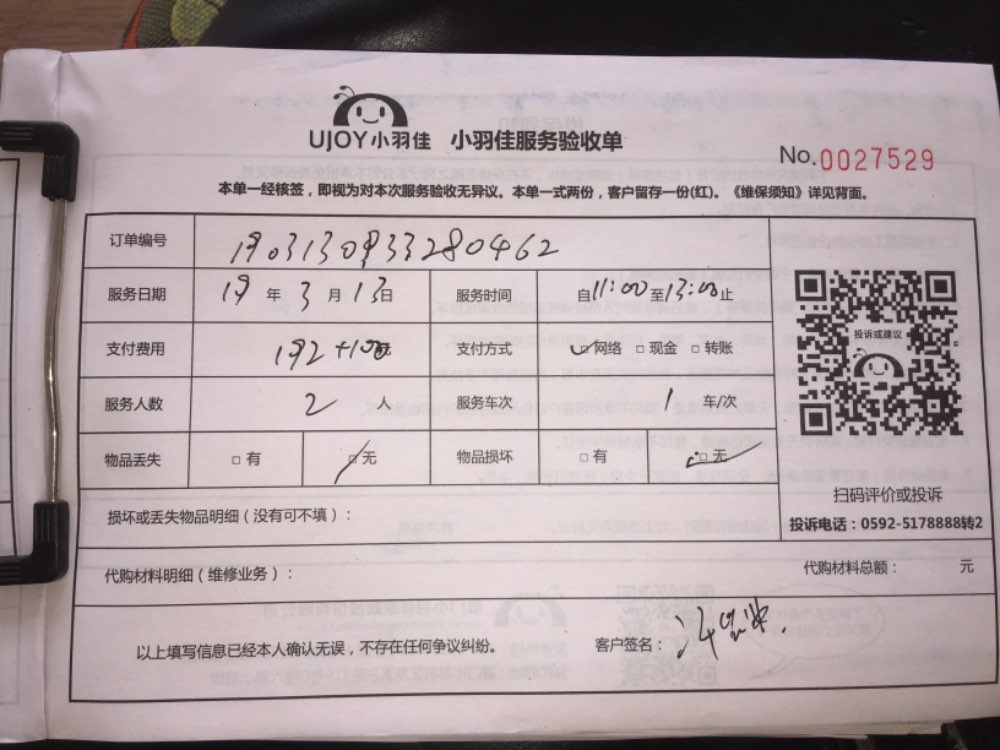 UJOY小羽佳 小羽佳服务验收单
No.0027529
本单一经核签，即视为对本次服务验收无异议。本单一式两份，客户留存一份(红)。《维保须知》详见背面。
订单编号 190313093328046２
服务日期 19 年 3 月 13日 服务时间 自11:00至13:00止
支付费用 192+100元 支付方式 ☑网络 □现金 □转账
服务人数 2 人 服务车次 1 车/次
物品丢失 □有 ☑无 物品损坏 □有 ☑无
投诉或建议
扫码评价或投诉
投诉电话：0592-5178888转2
损坏或丢失物品明细（没有可不填）：
代购材料明细（维修业务）： 代购材料总额： 元
以上填写信息已经本人确认无误，不存在任何争议纠纷。 客户签名：